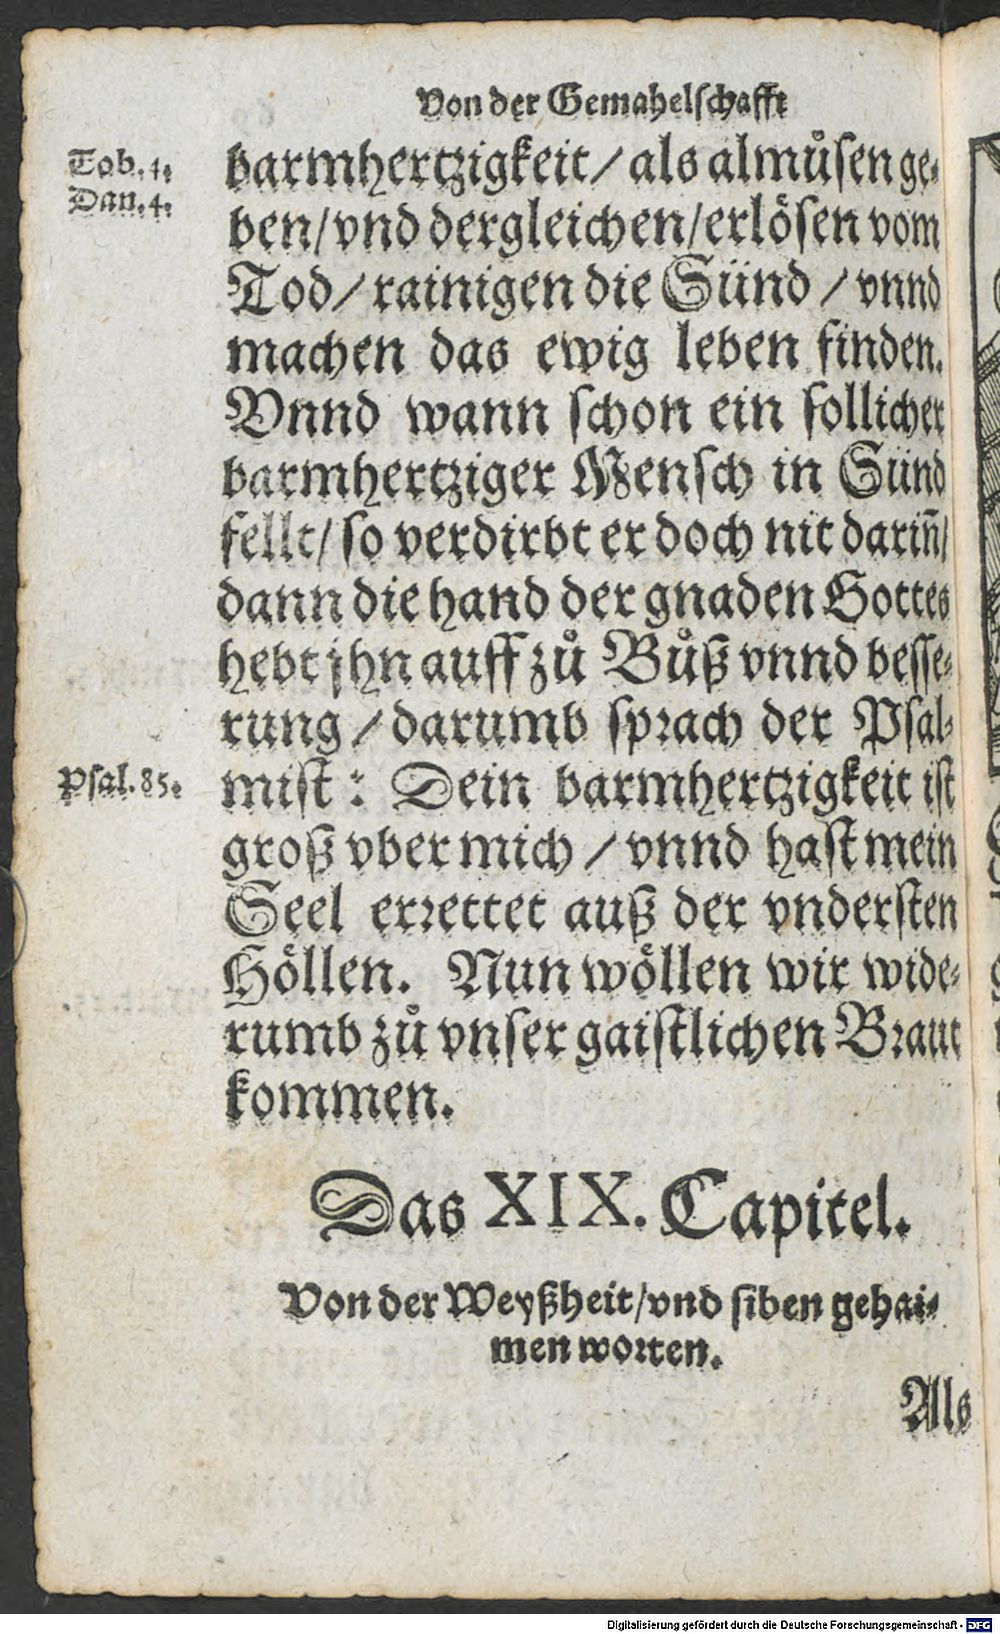 Von der Gemahelschafft
Tob. 4.
Dan. 4.
barmhertzigkeit / als almůsen ge-
ben / vnd dergleichen / erlösen vom
Tod / rainigen die Sünd / vnnd
machen das ewig leben finden.
Vnnd wann schon ein sollicher
barmhertziger Mensch in Sünd
fellt / so verdirbt er doch nit dariñ /
dann die hand der gnaden Gottes
hebt jhn auff zů Bůß vnnd besse-
rung / darumb sprach der Psal-
Psal. 85.
mist : Dein barmhertzigkeit ist
groß vber mich / vnnd hast mein
Seel errettet auß der vndersten
Höllen. Nun wöllen wir wide-
rumb zů vnser gaistlichen Braut
kommen.
Das XIX. Capitel.
Von der Weyßheit / vnd siben gehai-
men worten.
Als
Digitalisierung gefördert durch die Deutsche Forschungsgemeinschaft - DFG